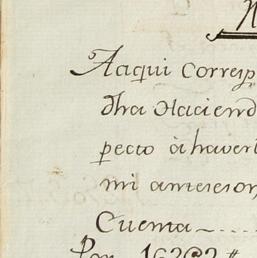 Aaqui Corresp
dha Haciend
pecto à haver
mi antesesor
Cuenta
Por 16262